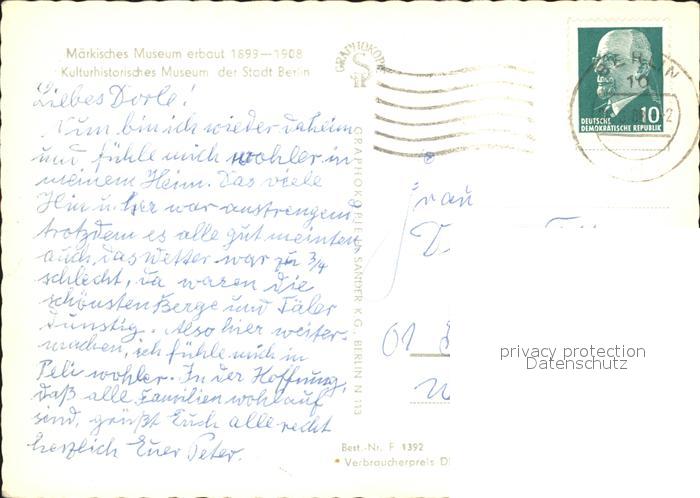 Märkisches Museum erbaut 1899—1908
Kulturhistorisches Museum der Stadt Berlin
Liebes Dorle!
Nun bin ich wieder daheim
und fühle mich wohler in
meinem Heim. Das viele
Hin u. her war anstrengend
trotzdem es alle gut meinten
auch das Wetter war zu 3/4
schlecht, da waren die
schönsten Berge und Täler
dunstig. Also hier weiter-
machen, ich fühle mich in
wohler. In der Hoffnung,
daß alle Familien wohlauf
sind, grüßt Euch alle recht
herzlich Euer Peter.
GRAPHOKOPIE H. SANDER K.G. BERLIN N 113
GRAPHOKOPIE
DEUTSCHE
DEMOKRATISCHE REPUBLIK
10
BERLIN
10
Frau
01
Best.-Nr. F 1392
Verbraucherpreis D
privacy protection
Datenschutz